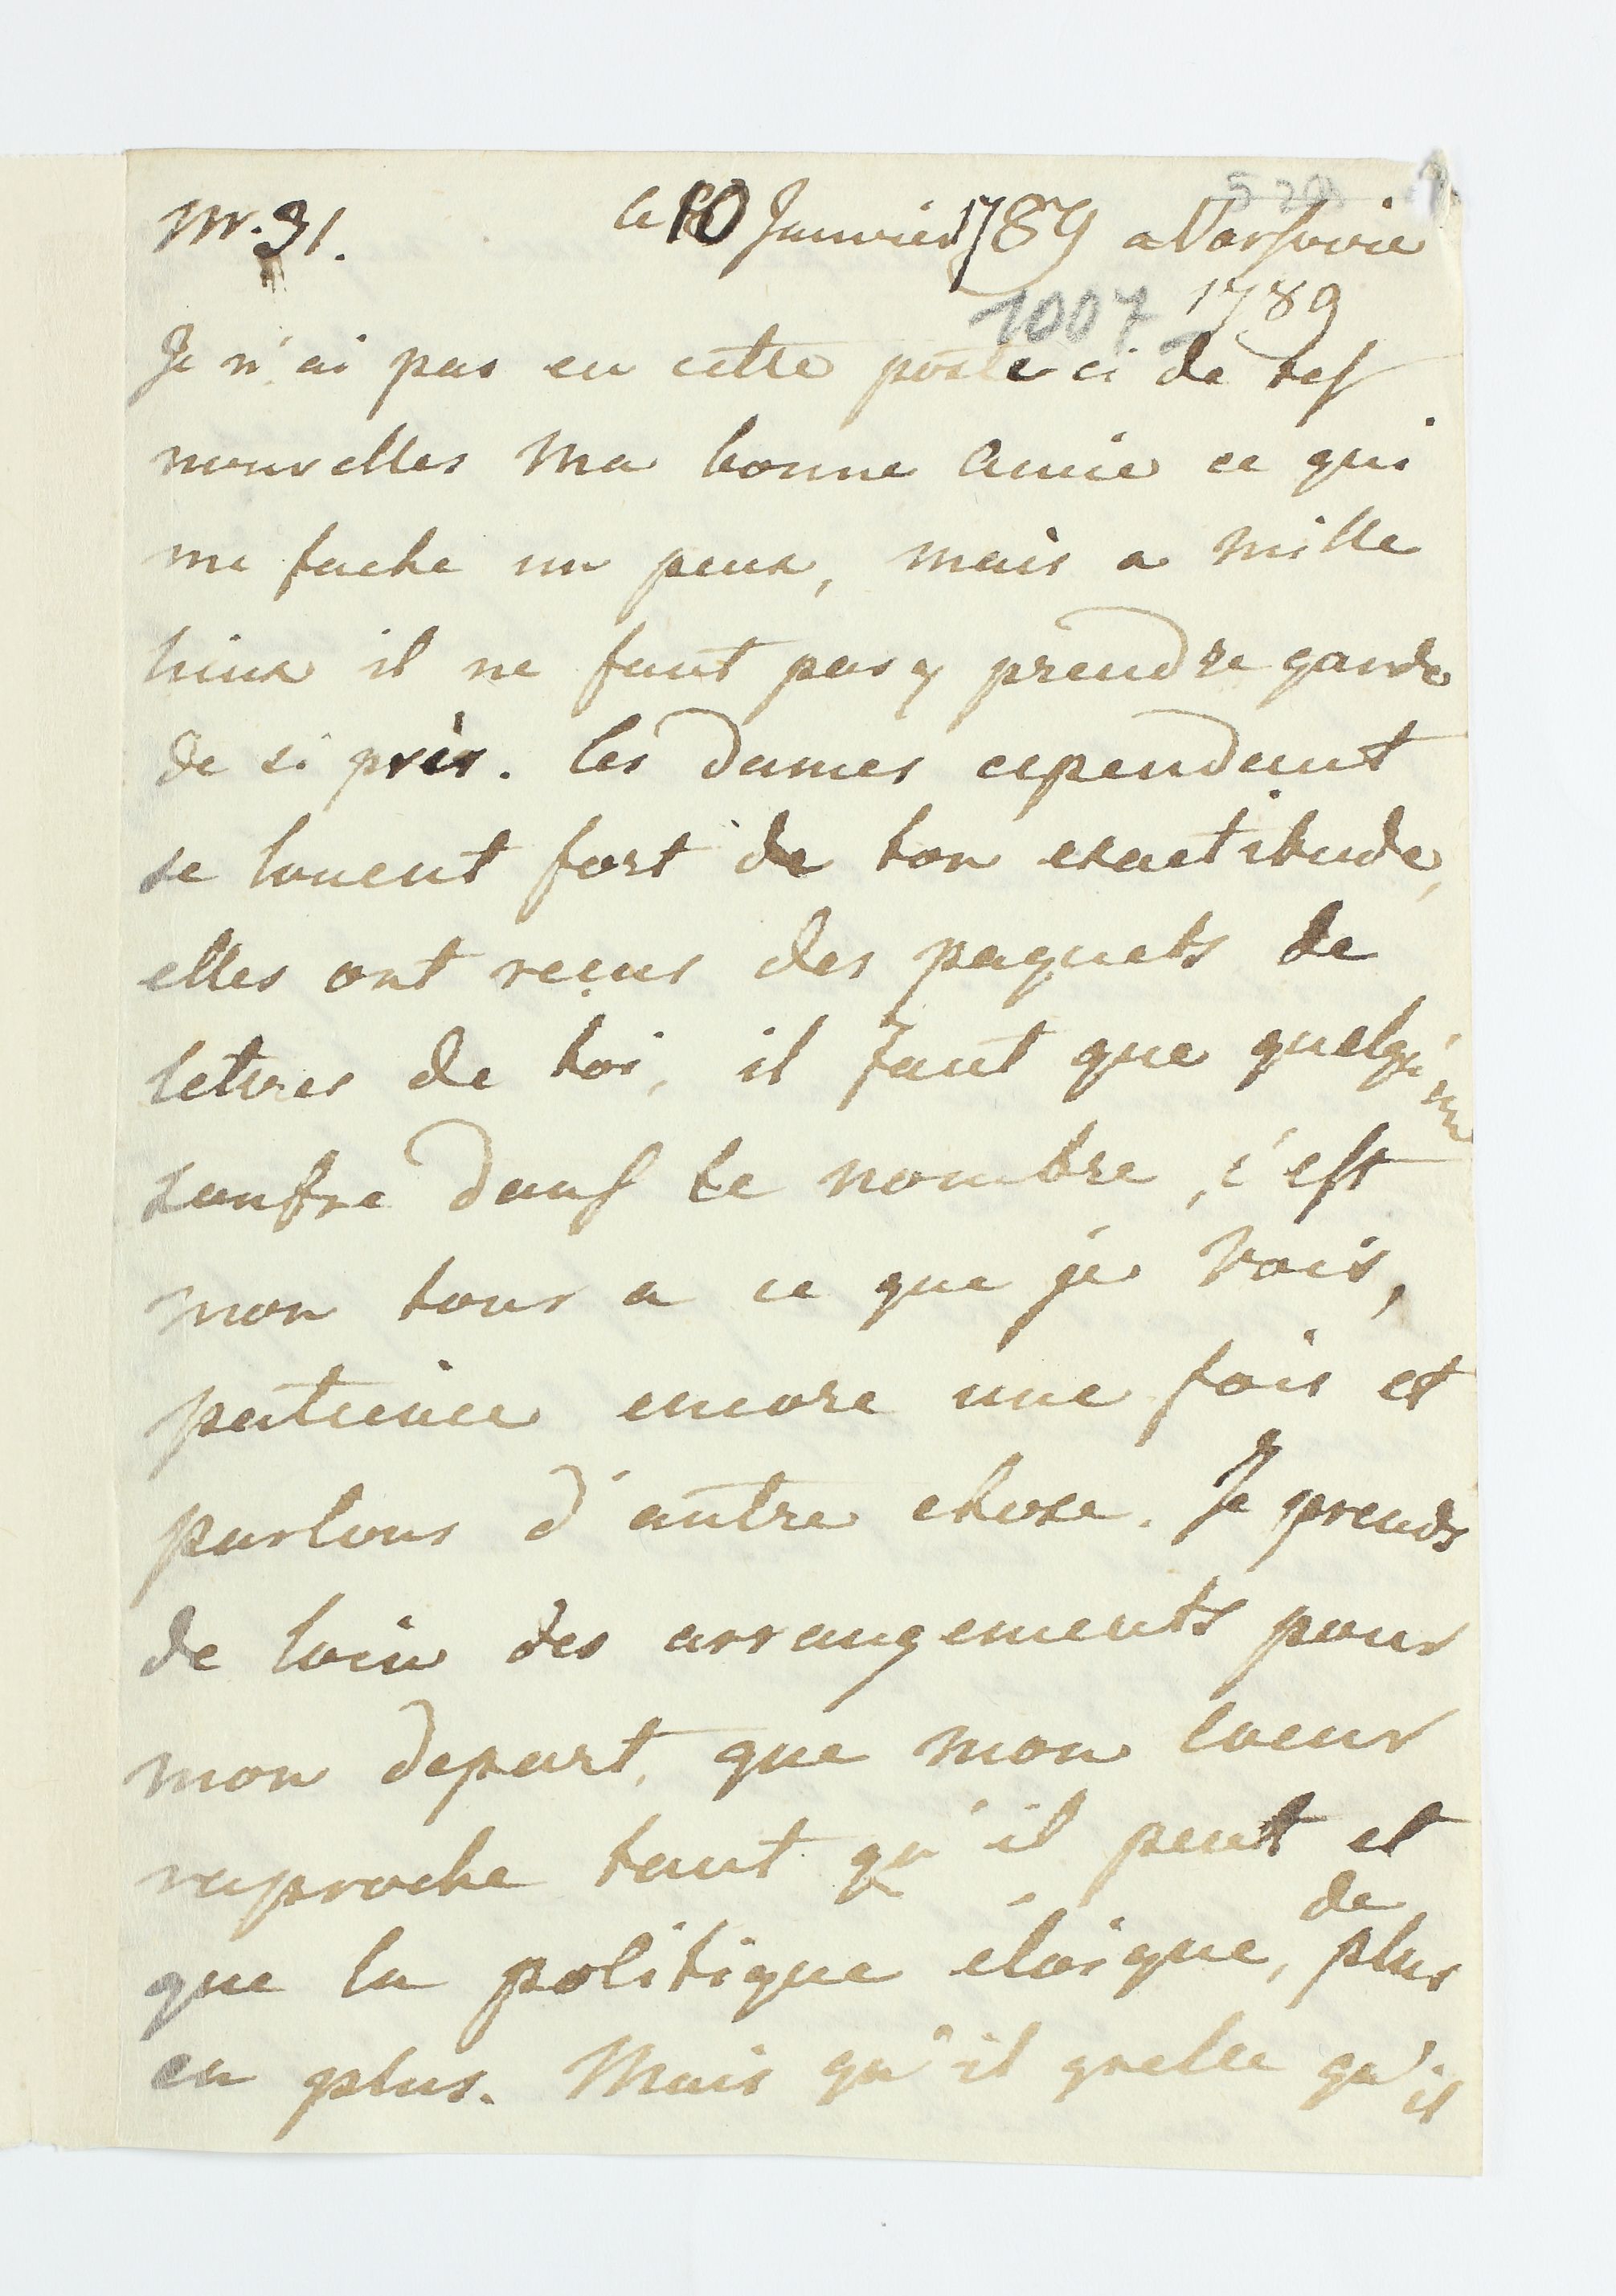 Nr. 31. le 10 Janvier 1789 a Varsovie
1007 1789
Je n'ai pas eu cette poste ci de tes
nouvelles Ma bonne Amie ce qui
me fache un peux, mais a mille
lieux il ne faut pas y prendre garde
de si près. Les dames cependant
se louent fort de ton exactitude,
elles ont reçus des paquets de
lettres de toi, il faut que quelqu'un
soufre dans le nombre, c'est
mon tour a ce que je Vois,
patience encore une fois et
parlons d'autre chose. Je prends
de loin des arrangements pour
mon depart, que mon coeur
raproche tant qu'il peut et
que la politique éloigne, de plus
en plus. Mais qu'il grelle qu'il